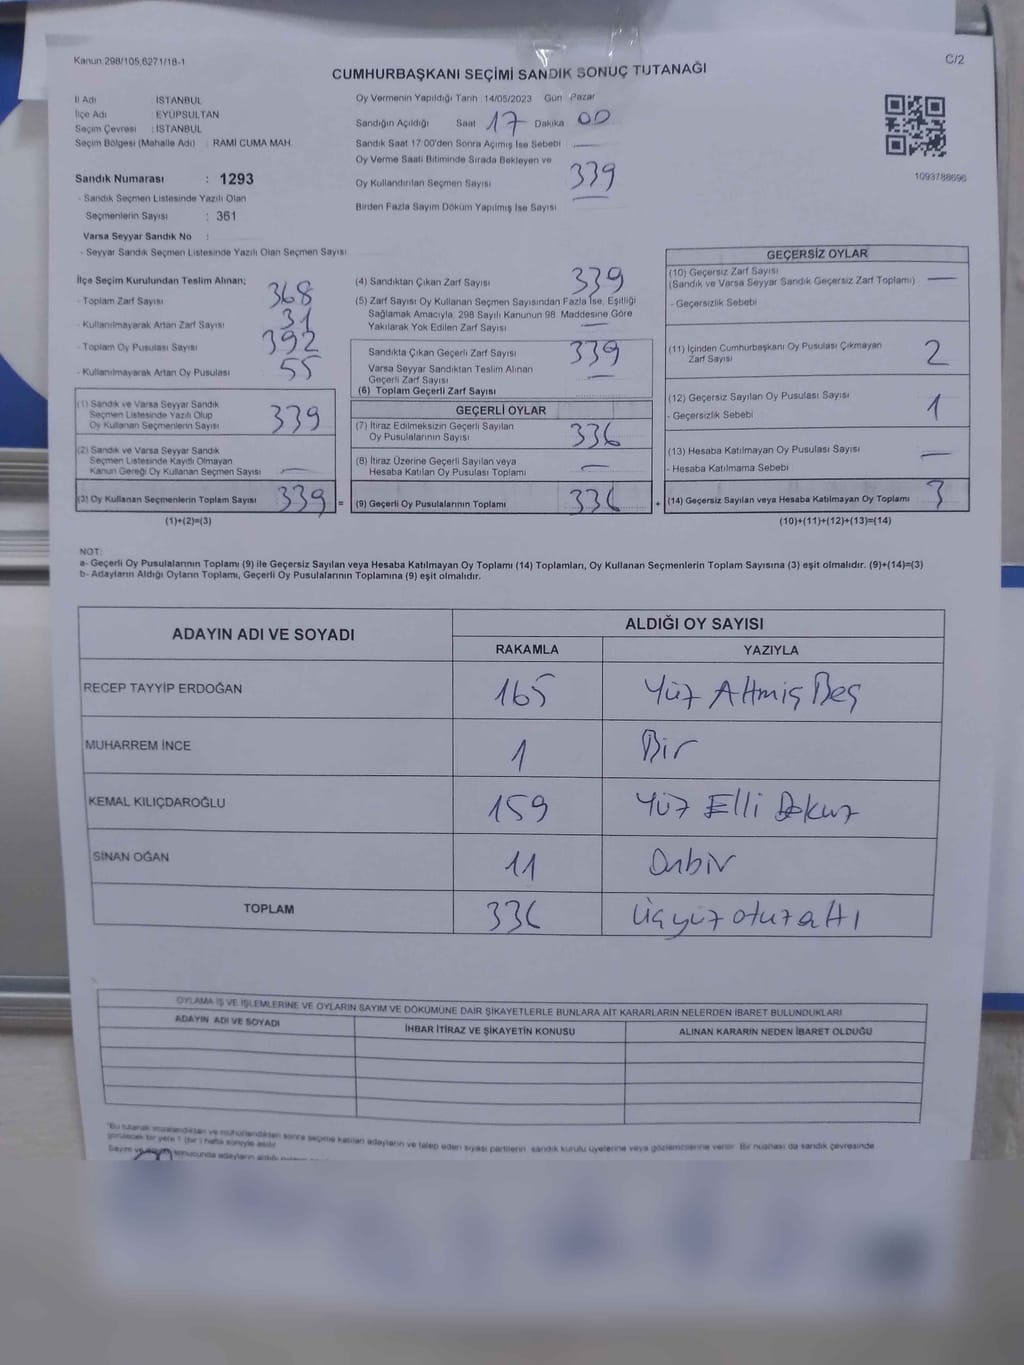 Kanun 298/105,6271/18-1
C/2
CUMHURBAŞKANI SEÇİMİ SANDIK SONUÇ TUTANAĞI
İl Adı İSTANBUL
İlçe Adı EYÜPSULTAN
Seçim Çevresi : İSTANBUL
Seçim Bölgesi (Mahalle Adı) : RAMİ CUMA MAH.
Sandık Numarası : 1293
- Sandık Seçmen Listesinde Yazılı Olan
Seçmenlerin Sayısı : 361
Varsa Seyyar Sandık No :
- Seyyar Sandık Seçmen Listesinde Yazılı Olan Seçmen Sayısı
Oy Vermenin Yapıldığı Tarih : 14/05/2023 Gün : Pazar
Sandığın Açıldığı Saat 17 Dakika 00
Sandık Saat 17:00'den Sonra Açımış İse Sebebi —
Oy Verme Saati Bitiminde Sırada Bekleyen ve
Oy Kullandırılan Seçmen Sayısı 339
Birden Fazla Sayım Döküm Yapılmış İse Sayısı —
1093788696
İlçe Seçim Kurulundan Teslim Alınan;
- Toplam Zarf Sayısı 368
- Kullanılmayarak Artan Zarf Sayısı 31
- Toplam Oy Pusulası Sayısı 392
- Kullanılmayarak Artan Oy Pusulası 55
(1) Sandık ve Varsa Seyyar Sandık
Seçmen Listesinde Yazılı Olup
Oy Kullanan Seçmenlerin Sayısı 339
(2) Sandık ve Varsa Seyyar Sandık
Seçmen Listesinde Kayıtlı Olmayan
Kanun Gereği Oy Kullanan Seçmen Sayısı —
(3) Oy Kullanan Seçmenlerin Toplam Sayısı 339 =
(1)+(2)=(3)
(4) Sandıktan Çıkan Zarf Sayısı 339
(5) Zarf Sayısı Oy Kullanan Seçmen Sayısından Fazla İse, Eşitliği
Sağlamak Amacıyla, 298 Sayılı Kanunun 98. Maddesine Göre
Yakılarak Yok Edilen Zarf Sayısı —
Sandıkta Çıkan Geçerli Zarf Sayısı 339
Varsa Seyyar Sandıktan Teslim Alınan
Geçerli Zarf Sayısı —
(6) Toplam Geçerli Zarf Sayısı
GEÇERLİ OYLAR
(7) İtiraz Edilmeksizin Geçerli Sayılan
Oy Pusulalarının Sayısı 336
(8) İtiraz Üzerine Geçerli Sayılan veya
Hesaba Katılan Oy Pusulası Toplamı —
(9) Geçerli Oy Pusulalarının Toplamı 336 +
GEÇERSİZ OYLAR
(10) Geçersiz Zarf Sayısı
(Sandık ve Varsa Seyyar Sandık Geçersiz Zarf Toplamı) —
- Geçersizlik Sebebi
(11) İçinden Cumhurbaşkanı Oy Pusulası Çıkmayan
Zarf Sayısı 2
(12) Geçersiz Sayılan Oy Pusulası Sayısı 1
- Geçersizlik Sebebi
(13) Hesaba Katılmayan Oy Pusulası Sayısı —
- Hesaba Katılmama Sebebi
(14) Geçersiz Sayılan veya Hesaba Katılmayan Oy Toplamı 3
(10)+(11)+(12)+(13)=(14)
NOT:
a- Geçerli Oy Pusulalarının Toplamı (9) ile Geçersiz Sayılan veya Hesaba Katılmayan Oy Toplamı (14) Toplamları, Oy Kullanan Seçmenlerin Toplam Sayısına (3) eşit olmalıdır. (9)+(14)=(3)
b- Adayların Aldığı Oyların Toplamı, Geçerli Oy Pusulalarının Toplamına (9) eşit olmalıdır.
ADAYIN ADI VE SOYADI ALDIĞI OY SAYISI
RAKAMLA YAZIYLA
RECEP TAYYİP ERDOĞAN 165 Yüz Altmış Beş
MUHARREM İNCE 1 Bir
KEMAL KILIÇDAROĞLU 159 Yüz Elli Dokuz
SİNAN OĞAN 11 Onbir
TOPLAM 336 Üçyüz otuz altı
OYLAMA İŞ VE İŞLEMLERİNE VE OYLARIN SAYIM VE DÖKÜMÜNE DAİR ŞİKAYETLERLE BUNLARA AİT KARARLARIN NELERDEN İBARET BULUNDUKLARI
ADAYIN ADI VE SOYADI İHBAR İTİRAZ VE ŞİKAYETİN KONUSU ALINAN KARARIN NEDEN İBARET OLDUĞU
"Bu tutanak imzalandıktan ve mühürlendikten sonra seçime katılan adayların ve talep eden siyasi partilerin sandık kurulu üyelerine veya gözlemcilerine verilir. Bir nüshası da sandık çevresinde
görülecek bir yere 1 (bir) hafta süreyle asılır.